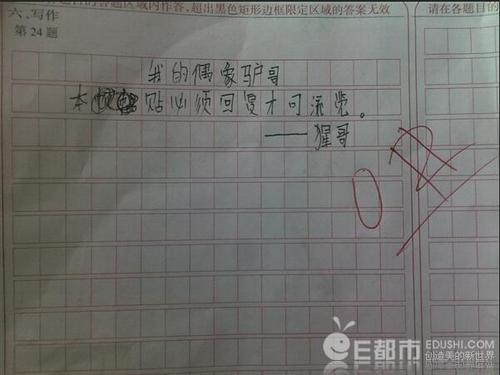 的答题区域内作答，超出黑色矩形边框限定区域的答案无效
请在各题目的
六、写作
第24题
我的偶像驴哥
本贴必须回复才可浏览。
——猩哥
0
E都市 EDUSHI.COM
创造美的新世界